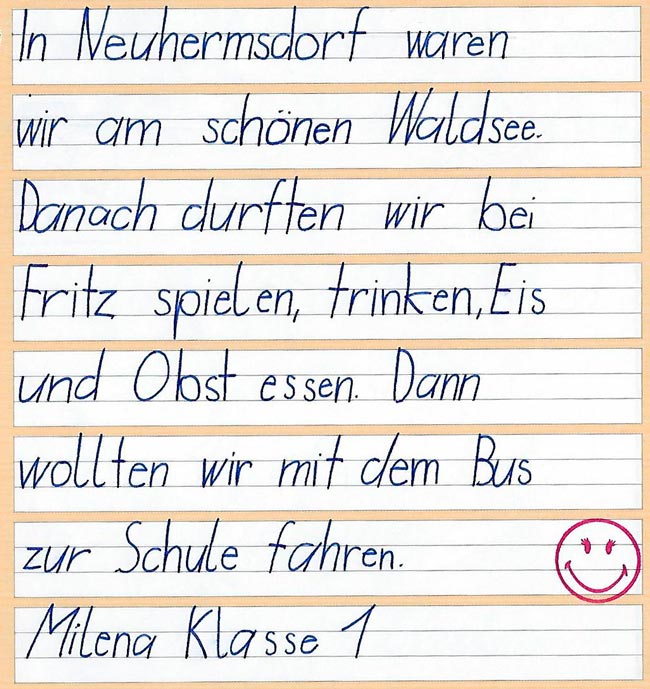 In Neuhermsdorf waren
wir am schönen Waldsee.
Danach durften wir bei
Fritz spielen, trinken, Eis
und Obst essen. Dann
wollten wir mit dem Bus
zur Schule fahren.
Milena Klasse 1